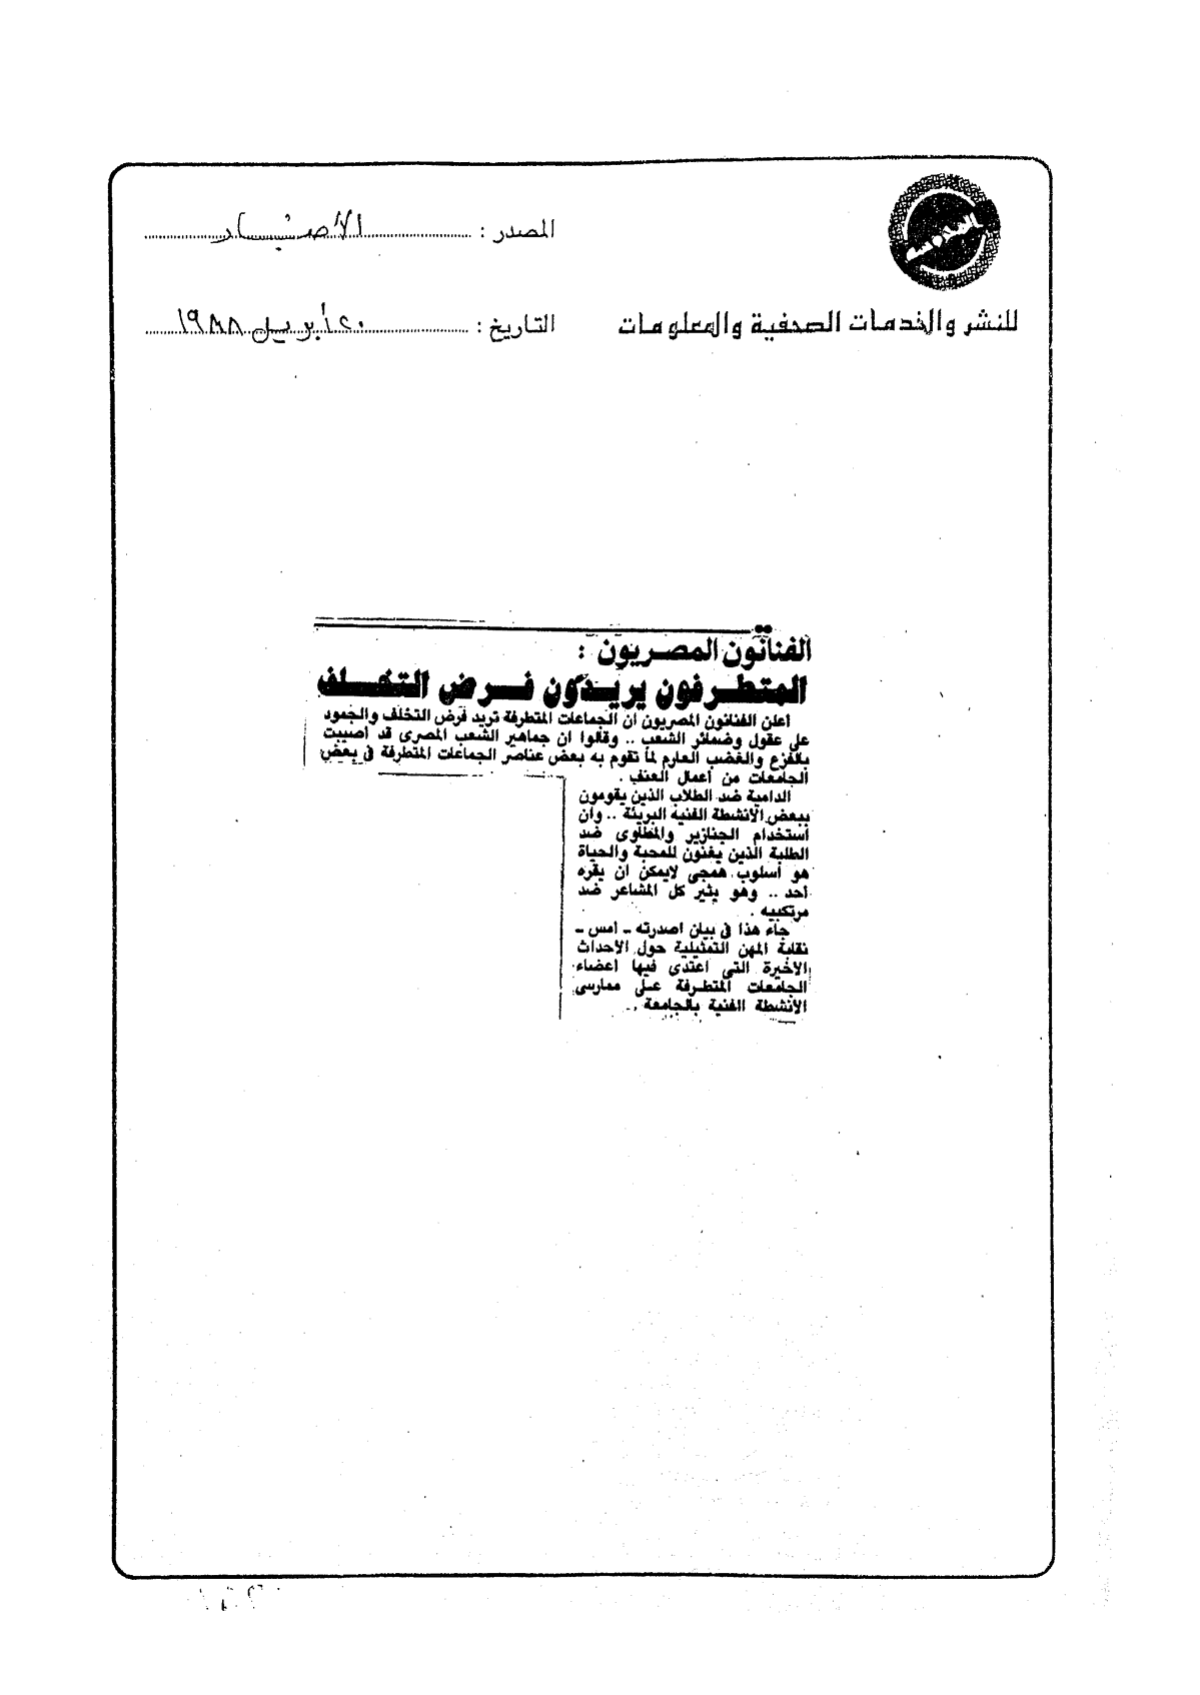 المصدر : الأخبار
للنشر والخدمات الصحفية والمعلومات
التاريخ : ٢٠ أبريل ١٩٨٨
الفنانون المصريون :
المتطرفون يريدون فرض التخلف
اعلن الفنانون المصريون ان الجماعات المتطرفة تريد فرض التخلف والجمود
على عقول وضمائر الشعب .. وقالوا ان جماهير الشعب المصرى قد اصيبت
بالفزع والغضب العارم لما تقوم به بعض عناصر الجماعات المتطرفة فى بعض
الجامعات من أعمال العنف .
الدامية ضد الطلاب الذين يقومون
ببعض الانشطة الفنية البريئة .. وان
استخدام الجنازير والمطاوى ضد
الطلبة الذين يغنون للمحبة والحياة
هو أسلوب همجى لايمكن ان يقره
أحد .. وهو يثير كل المشاعر ضد
مرتكبيه .
جاء هذا فى بيان اصدرته ـ امس ـ
نقابة المهن التمثيلية حول الاحداث
الاخيرة التى اعتدى فيها اعضاء
الجامعات المتطرفة على ممارسى
الأنشطة الفنية بالجامعة .